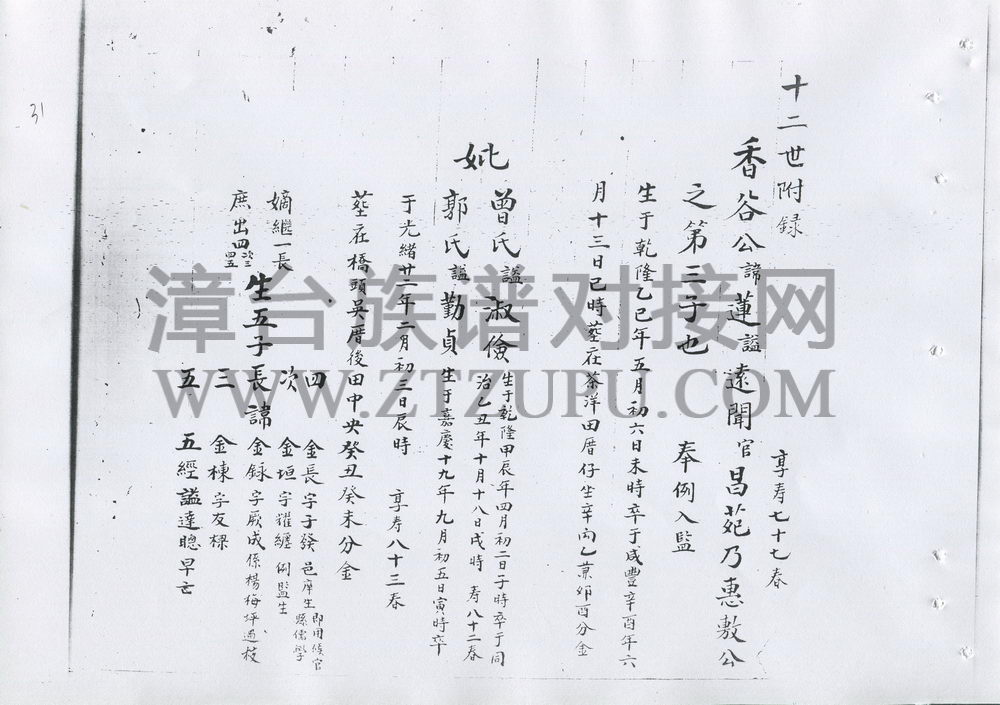 十二世附録
享寿七十七春
香谷公諱蓮謚遠聞官昌苑乃惠敷公
之第三子也 奉例入監
生于乾隆乙巳年五月初六日未時卒于咸豐辛酉年六
月十三日巳時塟在茶洋田厝仔坐辛丙乙兼夘酉分金
妣
曾氏謚淑儉生于乾隆甲辰年四月初二日子時卒于同
治乙丑年十月十八日戌時 寿八十二春
郭氏謚勤貞生于嘉慶十九年九月初五日寅時卒
于光緒廿二年二月初三日辰時 享寿八十三春
塟在橋頭吳厝後田中央癸丑癸未分金
嫡繼一長
庶出四次三四五
生五子長諱
四 金長字于發邑庠生即用候官縣儒學
次 金垣字耀纏例監生
金錄字厥成係楊梅坪過枝
三 金棟字友樑
五 五經謚達聰早亡
31
漳台族谱对接网
WWW.ZTZUPU.COM